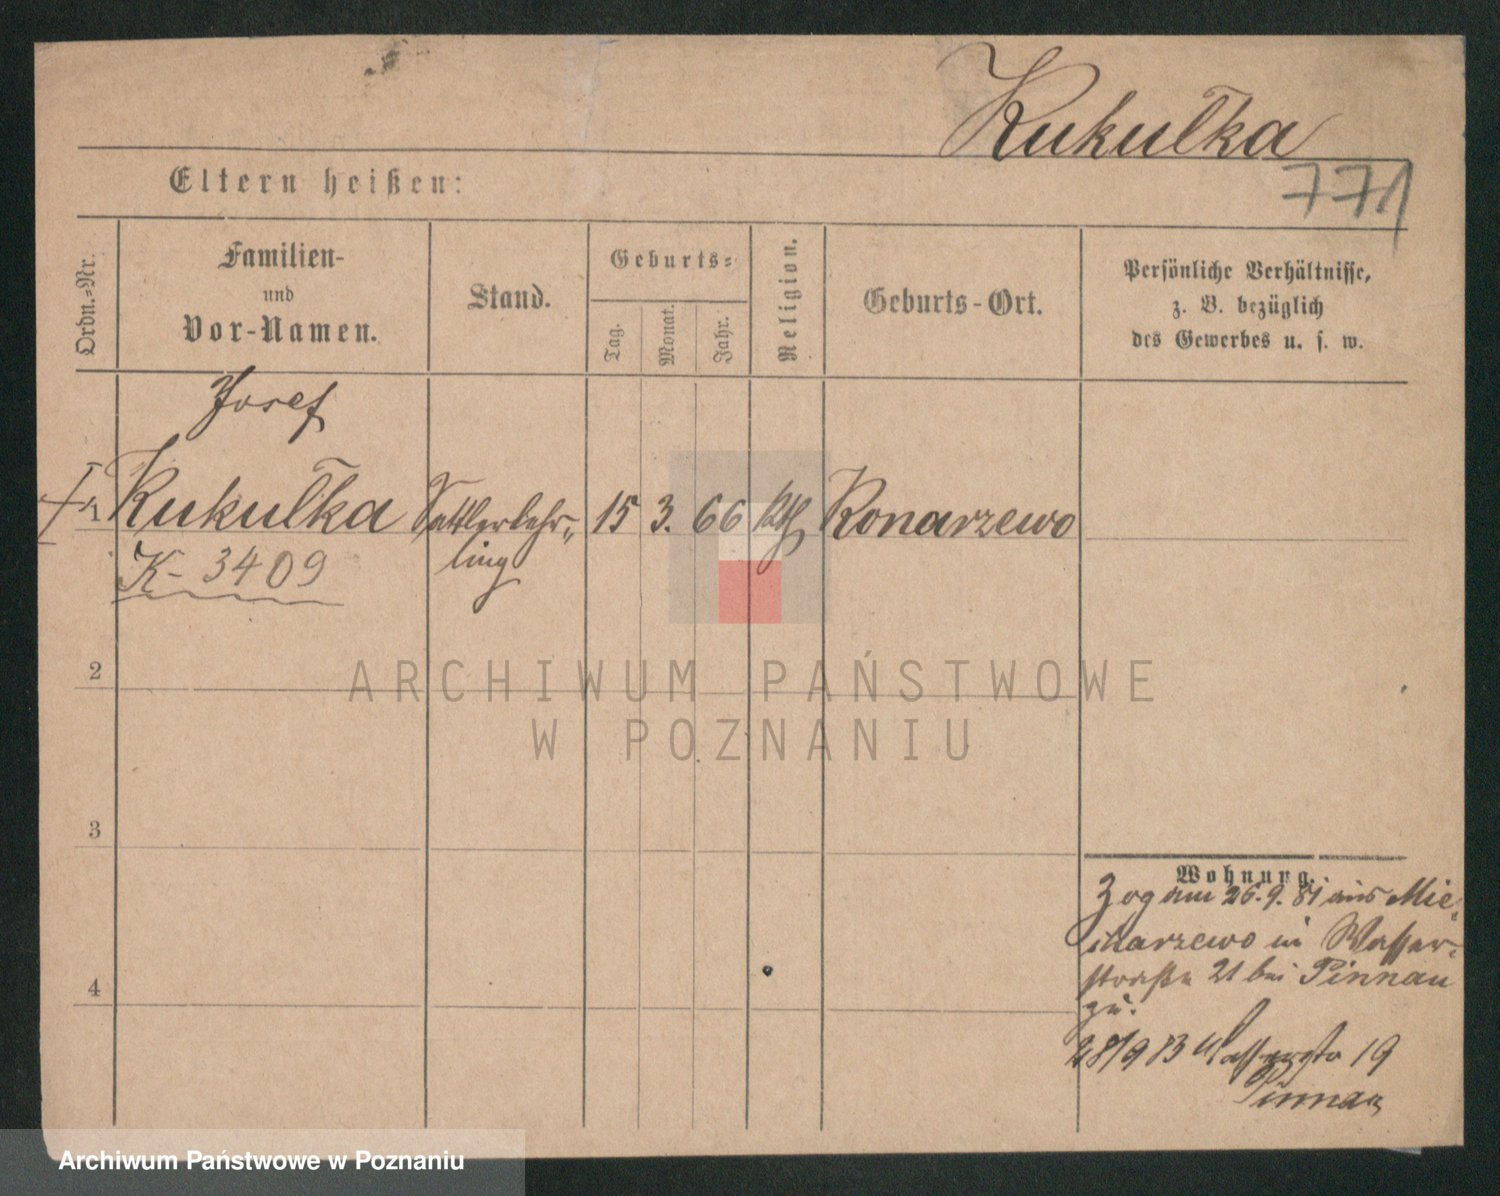 Kukułka
771
Eltern heißen:
Ordn.=Nr.
Familien-
und
Vor-Namen.
Stand.
Geburts=
Tag.
Monat.
Jahr.
Religion.
Geburts-Ort.
Persönliche Verhältnisse,
z. B. bezüglich
des Gewerbes u. s. w.
Josef
1 Kukułka Sattlerlehr- 15 3. 66 kth Konarzewo
ling
K- 3409
2
3
4
Wohnung.
Zog am 26.9.81 aus Mie-
czarzewo in Wasser-
straße 21 bei Pinnau
zu.
28/9 83 Wasserstr 19
Pinnau
ARCHIWUM PAŃSTWOWE
W POZNANIU
Archiwum Państwowe w Poznaniu